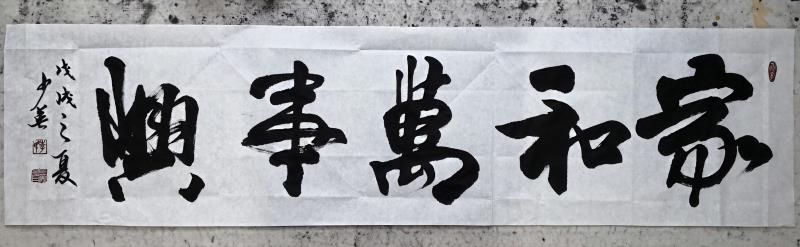 家和萬事興
戊戌之夏
少華